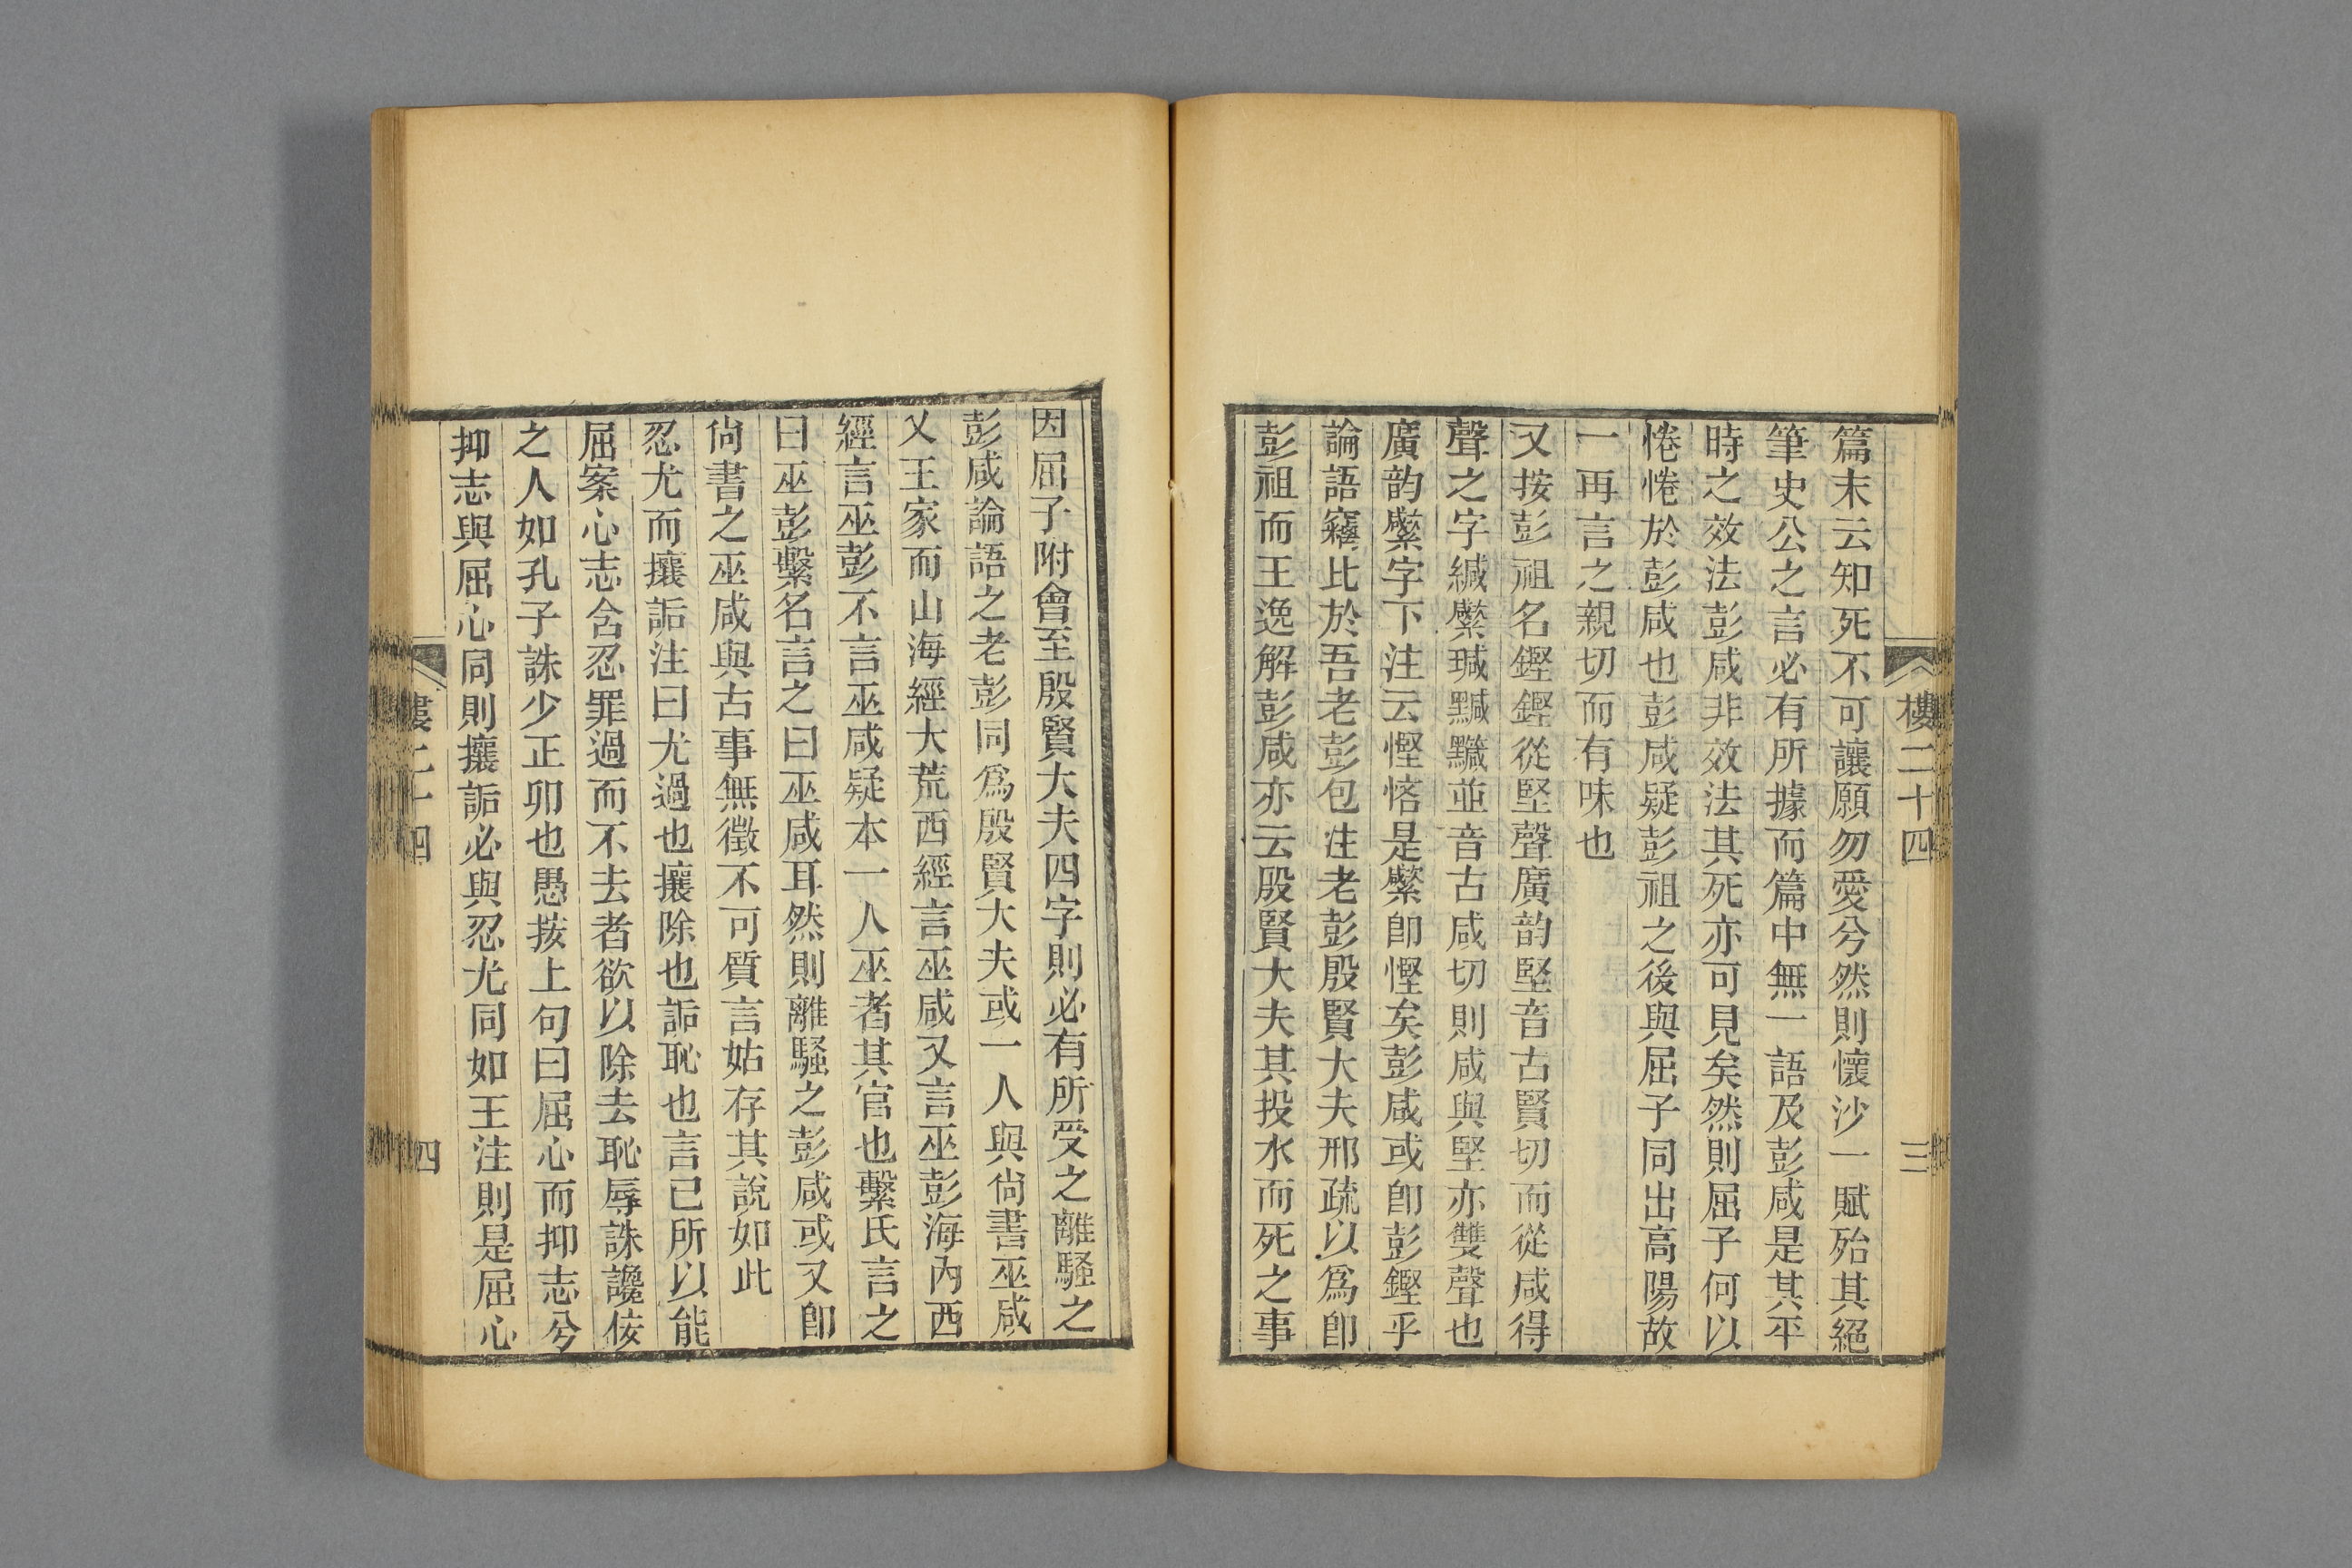 樓二十四
三
篇末云知死不可讓願勿愛兮然則懷沙一賦殆其絕
筆史公之言必有所據而篇中無一語及彭咸是其平
時之效法彭咸非效法其死亦可見矣然則屈子何以
惓惓於彭咸也彭咸疑彭祖之後與屈子同出高陽故
一再言之親切而有味也
又按彭祖名鏗鏗從堅聲廣韵堅音古賢切而從咸得
聲之字緘瑊黬並音古咸切則咸與堅亦雙聲也
廣韵字下注云慳悋是即慳矣彭咸或卽彭鏗乎
論語竊比於吾老彭包注老彭殷賢大夫邢疏以爲卽
彭祖而王逸解彭咸亦云殷賢大夫其投水而死之事
因屈子附會至殷賢大夫四字則必有所受之離騷之
彭咸論語之老彭同爲殷賢大夫或一人與尙書巫咸
乂王家而山海經大荒西經言巫咸又言巫彭海內西
經言巫彭不言巫咸疑本一人巫者其官也繫氏言之
曰巫彭繫名言之曰巫咸耳然則離騷之彭咸或又卽
尙書之巫咸與古事無徵不可質言姑存其說如此
忍尤而攘詬注曰尤過也攘除也詬恥也言己所以能
屈案心志含忍罪過而不去者欲以除去恥辱誅讒佞
之人如孔子誅少正卯也愚按上句曰屈心而抑志兮
抑志與屈心同則攘詬必與忍尤同如王注則是屈心
樓二十四
四